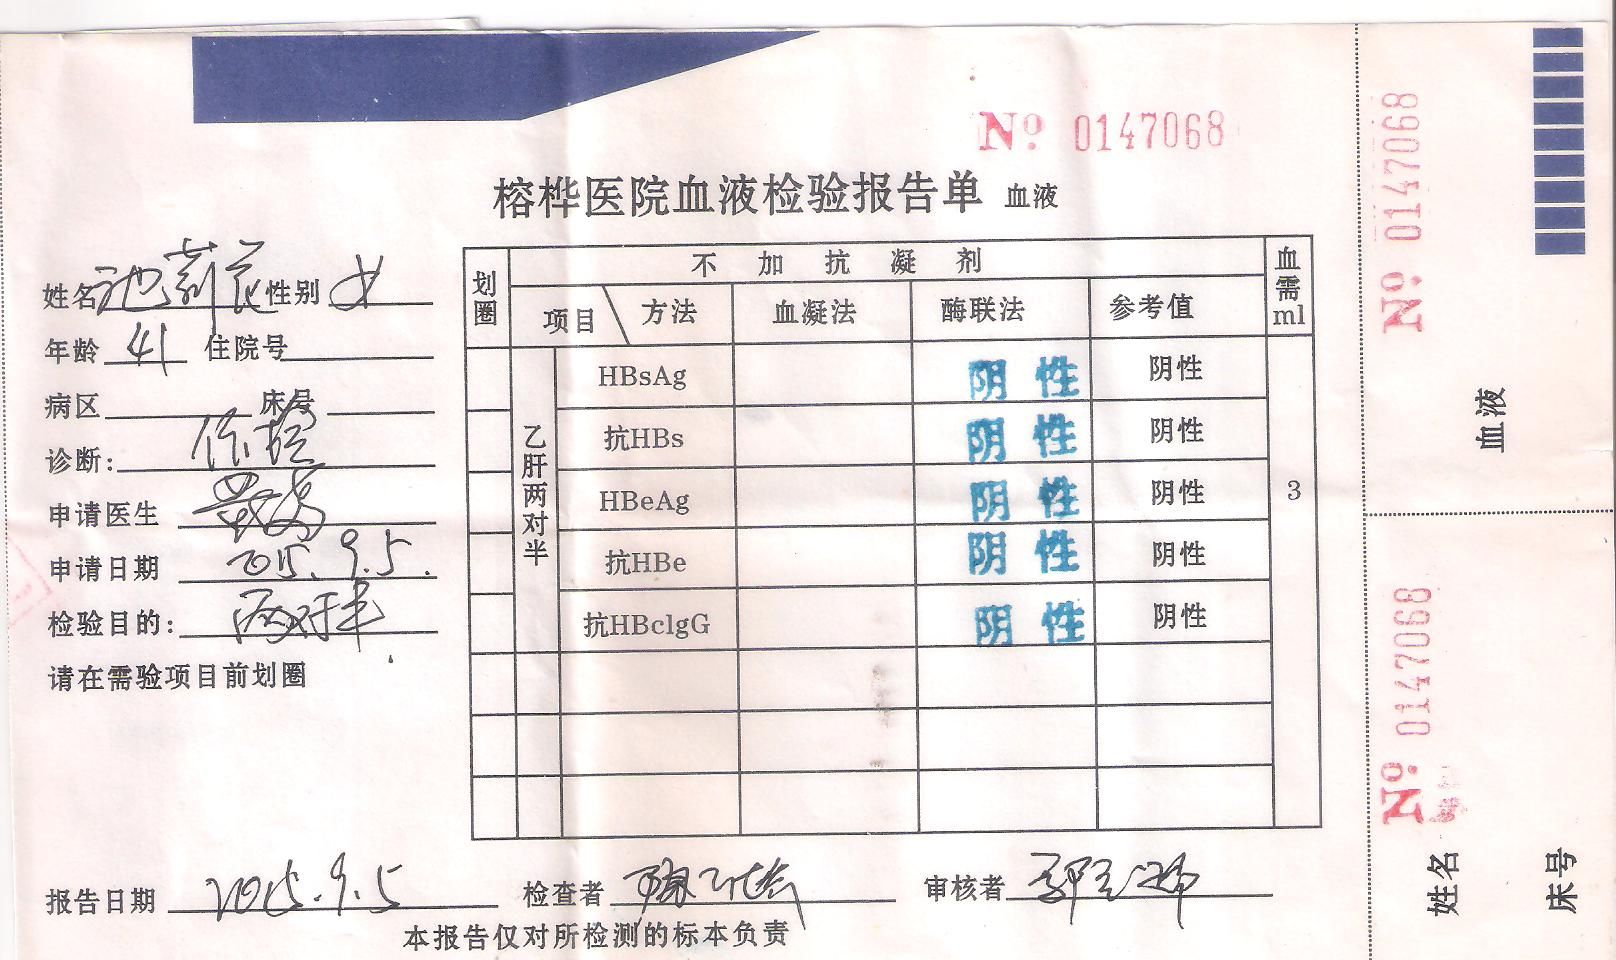 № 0147068
榕桦医院血液检验报告单 血液
姓名 池莉花 性别 女
年龄 41 住院号
病区 床号
诊断: 体检
申请医生
申请日期 2015.9.5.
检验目的: 两对半
请在需验项目前划圈
划圈 不加抗凝剂 血需ml
项目 \ 方法 血凝法 酶联法 参考值
乙肝两对半 3
HBsAg 阴性 阴性
抗HBs 阴性 阴性
HBeAg 阴性 阴性
抗HBe 阴性 阴性
抗HBclgG 阴性 阴性
报告日期 2015.9.5 检查者 审核者
本报告仅对所检测的标本负责
№ 0147068
血液
№ 0147068
姓名
床号